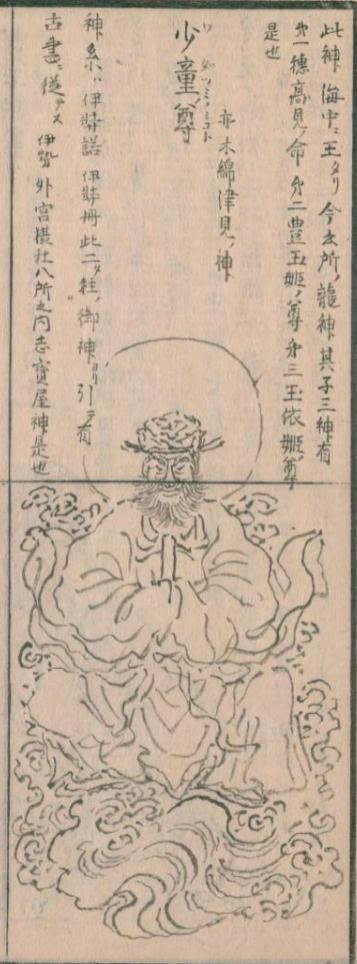 此神海中ニ王タリ今云所ノ龍神其子三神有
第一穂高見ノ命第二豊玉姫ノ尊第三玉依姫ノ尊
是也
少童尊
亦木綿津見ノ神
神系ハ伊弉諾伊弉冊此二タ柱ノ御神ヨリ引テ有
古書ニ従テス伊勢外宮横社八所之内志寶屋神是也